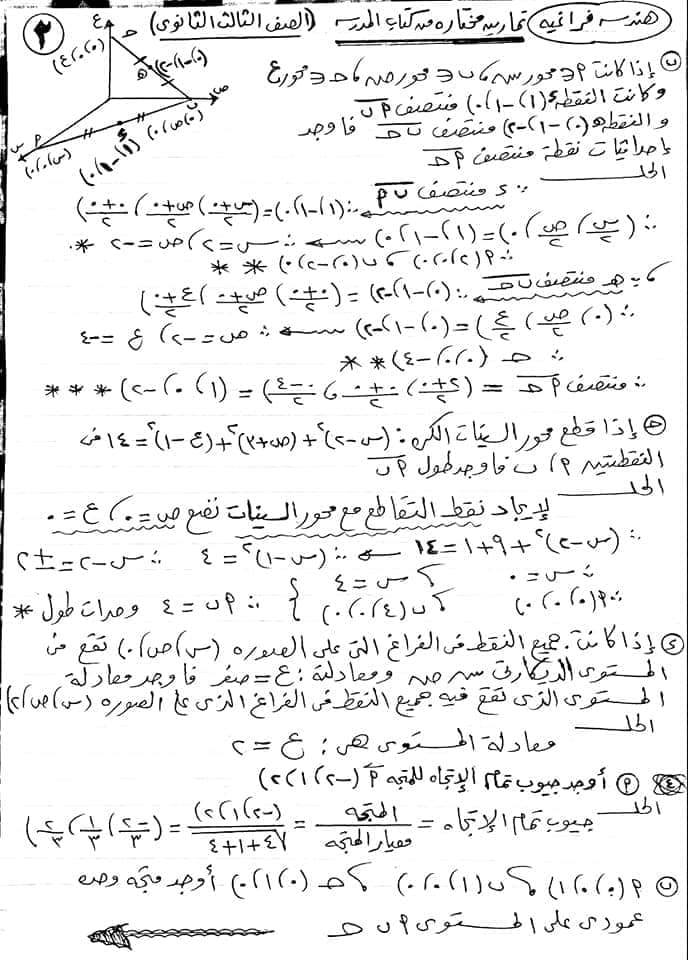 هندسه فراغيه (تمارين مختاره من كتاب المدرسه) (الصف الثالث الثانوى) ٢
ع
حـ
(٠،٠،ع)
هـ (٠،-١،-٢)
ص
ب
(٠،ص،٠)
س
P
(س،٠،٠)
ء
(١،-١،٠)
ب) إذا كانت P ∈ محور س، ب ∈ محور ص، حـ ∈ محور ع
وكانت النقطه ء (١،-١،٠) منتصف P ب
والنقطه هـ (٠،-١،-٢) منتصف ب حـ فاوجد
إحداثيات نقطة منتصف P حـ
الحل
∵ ء منتصف P ب ∴ (١،-١،٠) = (س+٠/٢ ، ٠+ص/٢ ، ٠+٠/٢)
∴ (س/٢ ، ص/٢ ، ٠) = (١،-١،٠) ← ∴ س = ٢، ص = -٢ *
∴ P (٢،٠،٠)، ب (٠،-٢،٠) * *
، ∵ هـ منتصف ب حـ ∴ (٠،-١،-٢) = (٠+٠/٢ ، ص+٠/٢ ، ع+٠/٢)
∴ (٠ ، ص/٢ ، ع/٢) = (٠،-١،-٢) ← ∴ ص = -٢، ع = -٤
∴ حـ (٠،٠،-٤) * *
∴ منتصف P حـ = (٢+٠/٢ ، ٠+٠/٢ ، ٠-٤/٢) = (١،٠،-٢) * * *
حـ) إذا قطع محور السينات الكره: (س-٢)٢ + (ص+٣)٢ + (ع-١)٢ = ١٤ فى
النقطتين P، ب فاوجد طول P ب
الحل
لإيجاد نقط التقاطع مع محور السينات نضع ص = ٠، ع = ٠
∴ (س-٢)٢ + ٩ + ١ = ١٤ ← ∴ (س-١)٢ = ٤ ∴ س-٢ = ±٢
∴ س = ٠ ، س = ٤
∴ P (٠،٠،٠) ، ب (٤،٠،٠) } ∴ P ب = ٤ وحدات طول *
ء) إذا كانت جميع النقط فى الفراغ التى على الصوره (س،ص،٠) تقع فى
المستوى الديكارتى س ص ومعادلته: ع = صفر فاوجد معادلة
المستوى الذى تقع فيه جميع النقط فى الفراغ الذى على الصوره (س،ص،٢)
الحل
معادلة المستوى هى: ع = ٢
٤) P) أوجد جيوب تمام الإتجاه للمتجه P (-٢،١،٢)
الحل
جيوب تمام الإتجاه = المتجه/معيار المتجه = (-٢،١،٢)/√٤+١+٤ = (-٢/٣ ، ١/٣ ، ٢/٣)
ب) P (٠،٠،١)، ب (١،٠،٠)، حـ (٠،١،٠) أوجد متجه وحده
عمودى على المستوى P ب حـ